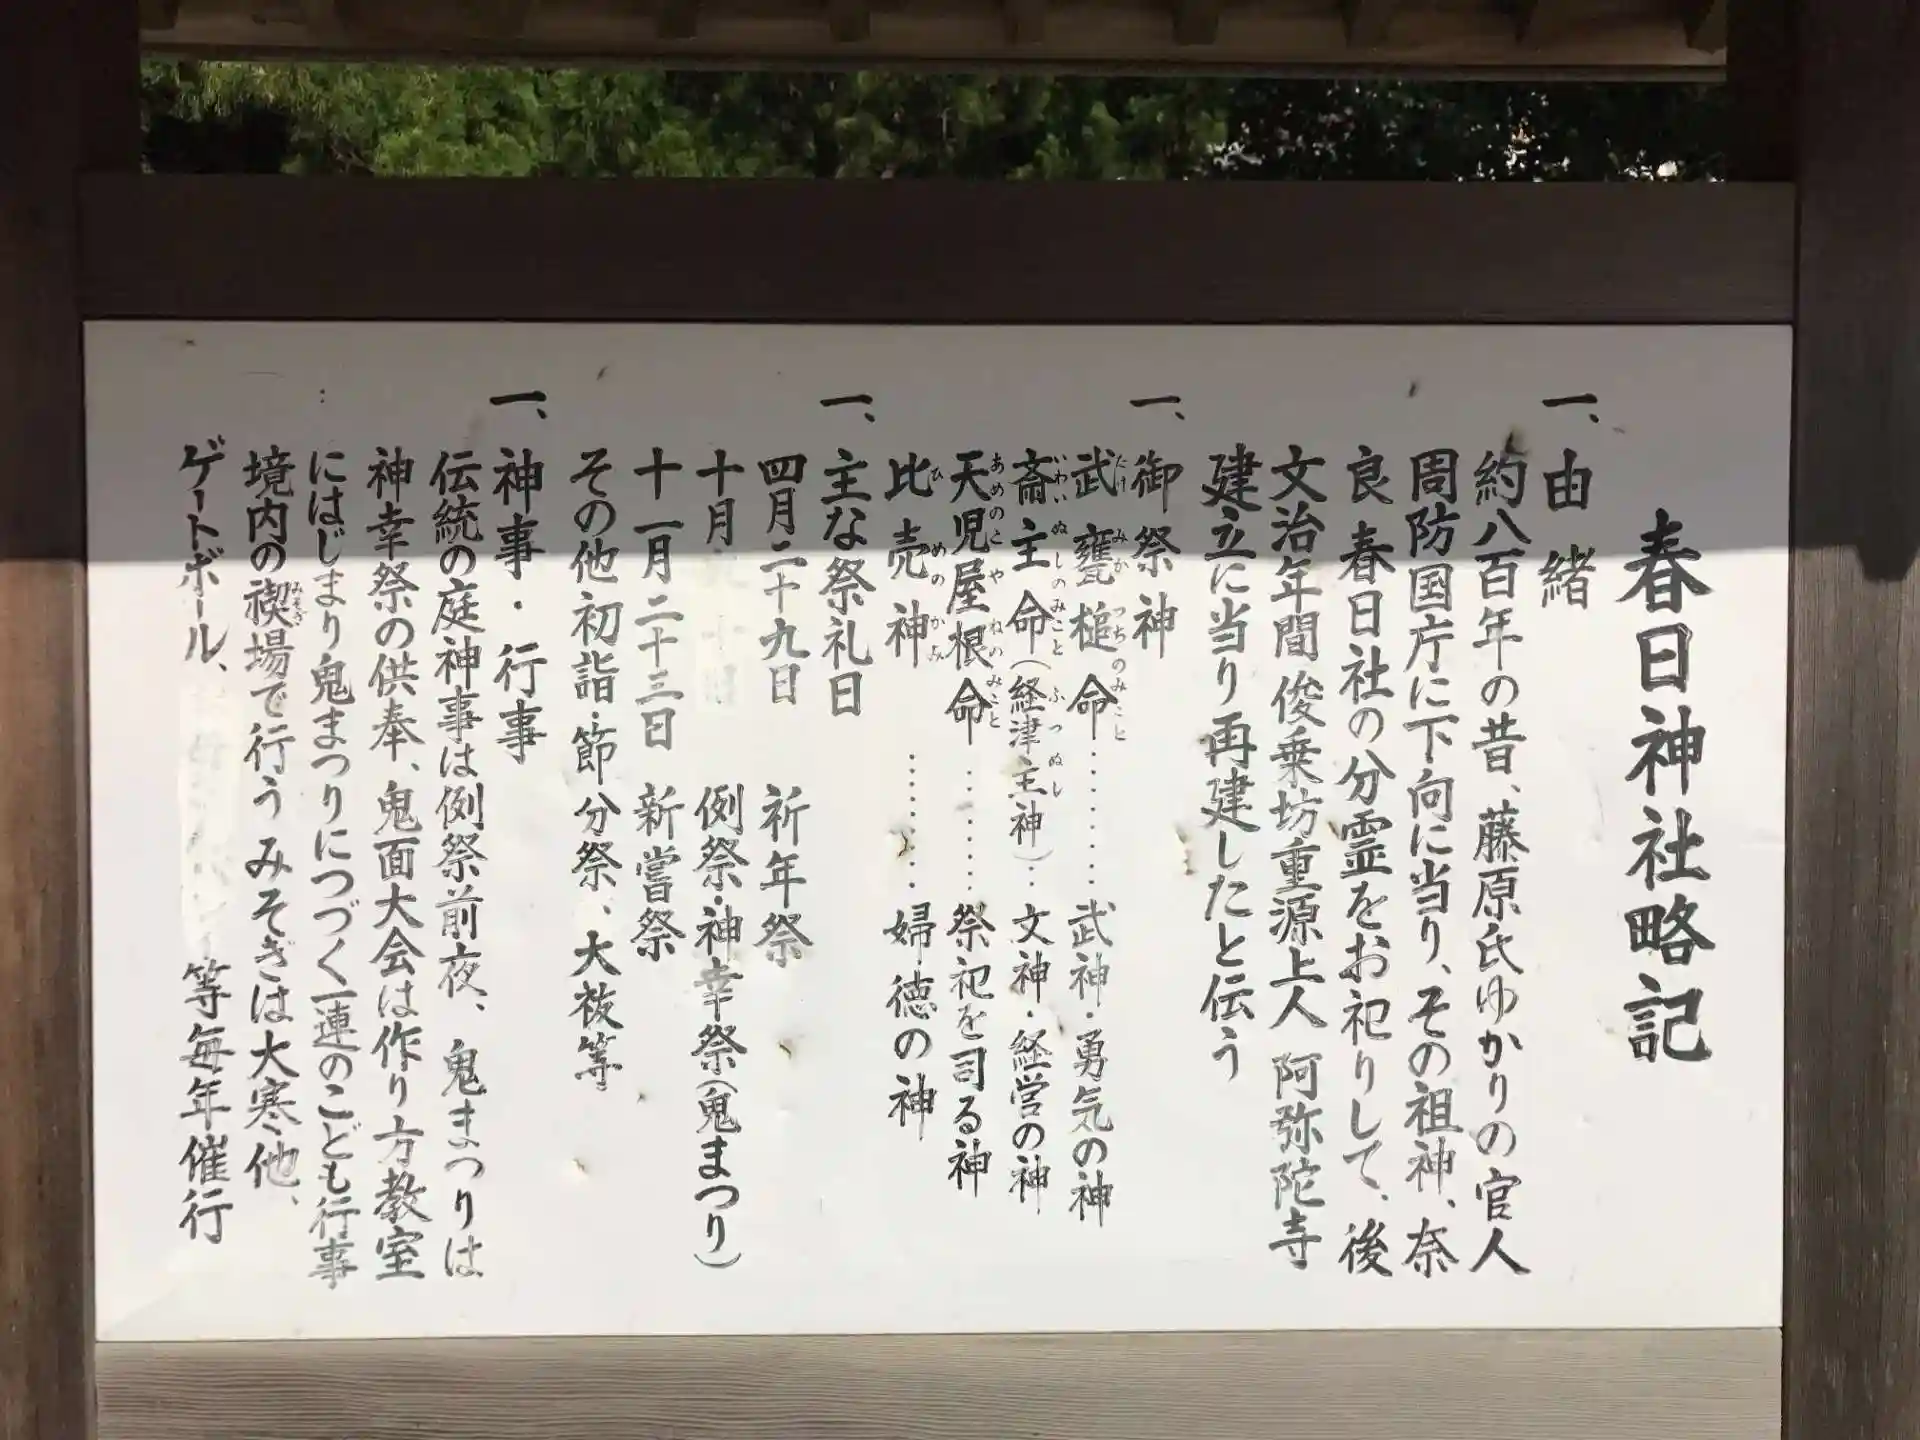 春日神社略記
一、由緒
約八百年の昔、藤原氏ゆかりの官人
周防国庁に下向に当り、その祖神、奈
良春日社の分霊をお祀りして、後
文治年間俊乗坊重源上人阿弥陀寺
建立に当り再建したと伝う
一、御祭神
武甕槌命………武神・勇気の神
たけみかつちのみこと
斎主命(経津主神)…文神・経営の神
いわいぬしのみこと ふつぬし
天児屋根命………祭祀を司る神
あめのこやねのみこと
比売神………婦徳の神
ひめのかみ
一、主な祭礼日
四月二十九日 祈年祭
十月 例祭・神幸祭(鬼まつり)
十一月二十三日 新嘗祭
その他初詣・節分祭、大祓等
一、神事・行事
伝統の庭神事は例祭前夜、鬼まつりは
神幸祭の供奉、鬼面大会は作り方教室
にはじまり鬼まつりにつづく一連のこども行事
境内の禊場で行うみそぎは大寒・他、
みそぎ
ゲートボール、 等毎年催行